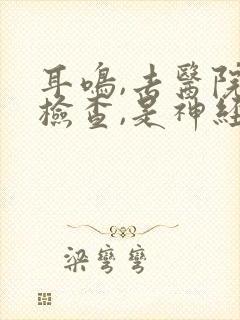 耳鳴,去醫院
檢查,是神經
梁彎彎